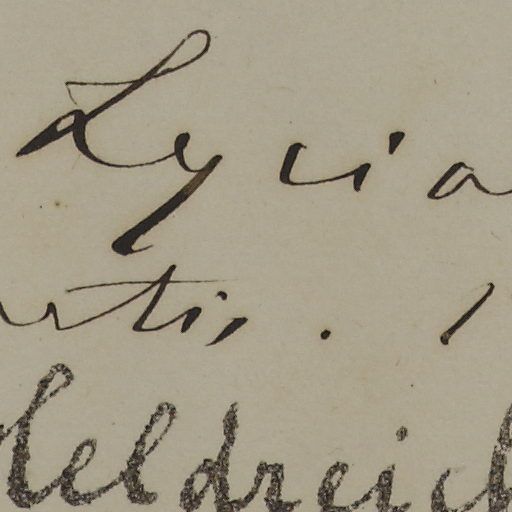 Lycia
rtis. 1
Heldreich